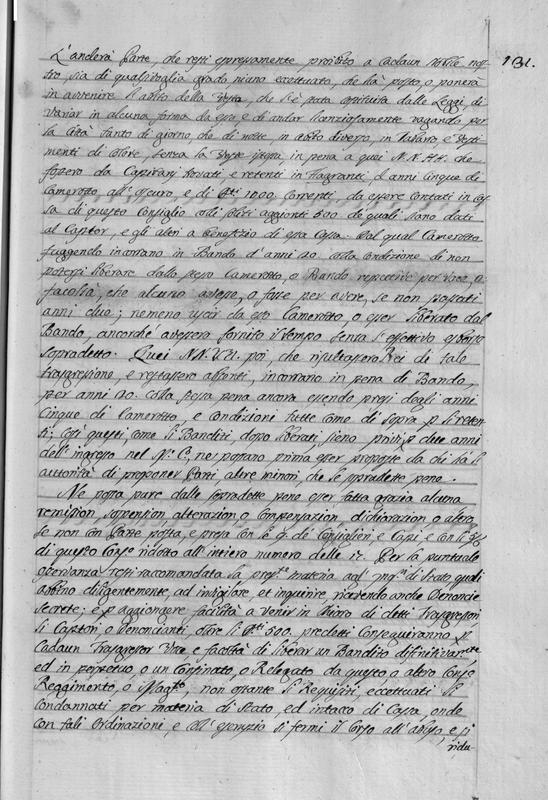 131.
L'anderà Parte, che resti espressamente proibito a cadaun Nobile nos-
tro, sia di qualsivoglia grado niuno eccettuato, che hà posto, o ponerà
in avvenire l'abito della Vesta, che li è stata costituita dalle Leggi, di
variar in alcuna forma da essa e di andar licenziosamente vagando per
la Città tanto di giorno, che di notte, in abito diverso, in Tabarro, e Vesti-
menti di colore, senza la Veste stessa, in pena a quei N. N. H. H. che
fossero da Capitanj trovati, e retenti in flagranti, d'anni cinque di
Camerotto all'oscuro, e di Dti 1000 correnti, da essere contati in Cas-
sa di questo Consiglio colli soliti aggionti 500 de quali siano dati
al Captor, e gli altri a benefizio di essa Cassa. Dal qual Camerotto
fuggendo incorrano in Bando d'anni 20 colla condizione di non
potersi liberare dallo stesso Camerotto, o Bando respettive per voce, o
facoltà, che alcuno avesse, o fosse per avere, se non passati
anni due; nemeno uscir da esso Camerotto, o esser liberato dal
Bando, ancorchè avessero fornito il tempo senza l'effettivo esborso
sopradetto. Quei N. N. V. H. poi, che risultassero Rei di tale
trasgressione, e restassero absenti, incorrano in pena di Bando,
per anni 20. colla stessa pena ancora essendo presi degli anni
cinque di Camerotto, e condizioni tutte come di sopra p li reten-
ti; così questi come li Banditi, dopo liberati, sieno privi p due anni
dell'ingresso nel M. C., nè possano prima esser proposte da chi hà l'
autorità di proponer Parti, altre minori che le sopradette pene.
Ne possa pure dalle sopradette pene esser fatta grazia alcuna
remission, sospension alterazion, o compensazion, dichiarazion, o altro,
se non con Parte posta, e presa con le 9. di Consiglieri e Capi, e con li
di questo Consº ridotto all'intiero numero delli 17. Per la puntuale
osservanza resti raccomandata la preste materia agl' Inqri di Stato quali
abbino diligentemente, ad invigilare, et inquirire, ricevendo anche Denoncie
Secrete; e p aggiongere facilità a venir in chiaro di detti Trasgressori
li Captori, o Denoncianti, oltre li Dti 500. predetti conseguiranno p
Cadaun Trasgressor Voce e facoltà di liberar un Bandito diffinitivamte
ed in perpetuo, o un Confinato, o Relegato da questo o altro Consº
Reggimento, o Magto, non ostante li Requisiti, eccettuati li
Condannati per materia di Stato, ed intacco di Cassa, onde
con tali Ordinazioni, e coll'esempio si fermi il corso all'abuso, e si
ridu-